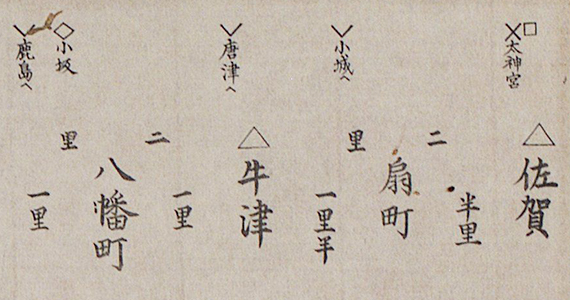 太神宮
佐賀
半里
二
扇町
里
小城へ
一里半
牛津
唐津へ
二
一里
八幡町
里
小坂
一里
鹿島へ